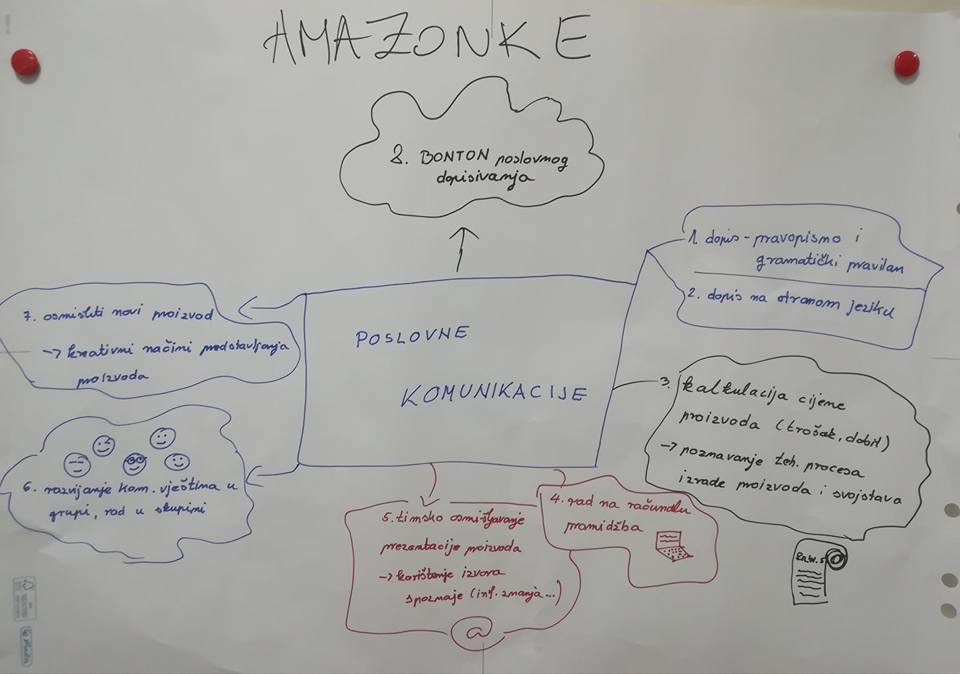 AMAZONKE
8. BONTON poslovnog
dopisivanja
1. dopis - pravopismo i
gramatički pravilan
2. dopis na stranom jeziku
7. osmisliti novi proizvod
→ kreativni načini predstavljanja
proizvoda
POSLOVNE
KOMUNIKACIJE
3. kalkulacija cijene
proizvoda (trošak, dobit)
→ poznavanje teh. procesa
izrade proizvoda i svojstava
6. razvijanje kom. vještina u
grupi, rad u skupini
5. timsko osmišljavanje
prezentacije proizvoda
→ korištenje izvora
spoznaje (inf. znanja...)
@
4. rad na računalu
promidžba